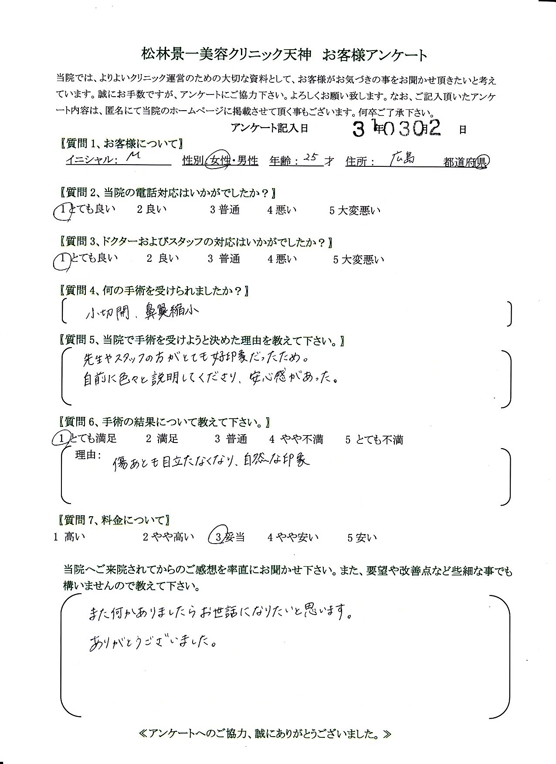 松林景一美容クリニック天神 お客様アンケート
当院では、よりよいクリニック運営のための大切な資料として、お客様がお気づきの事をお聞かせ頂きたいと考え
ています。誠にお手数ですが、アンケートにご協力下さい。よろしくお願い致します。なお、ご記入頂いたアンケ
ート内容は、匿名にて当院のホームページに掲載させて頂く事もございます。何卒ご了承下さい。
アンケート記入日 31年030月2 日
〖質問1、お客様について〗
イニシャル: M 性別 女性・男性 年齢:25才 住所: 広島 都道府県
〖質問2、当院の電話対応はいかがでしたか?〗
1とても良い 2 良い 3 普通 4 悪い 5 大変悪い
〖質問3、ドクターおよびスタッフの対応はいかがでしたか?〗
1とても良い 2 良い 3 普通 4 悪い 5 大変悪い
〖質問4、何の手術を受けられましたか?〗
小切開、鼻翼縮小
〖質問5、当院で手術を受けようと決めた理由を教えて下さい。〗
先生やスタッフの方がとても好印象だったため。
自前に色々と説明してくださり、安心感があった。
〖質問6、手術の結果について教えて下さい。〗
1とても満足 2 満足 3 普通 4 やや不満 5 とても不満
理由: 傷あとも目立たなくなり、自然な印象
〖質問7、料金について〗
1 高い 2 やや高い 3 妥当 4 やや安い 5 安い
当院へご来院されてからのご感想を率直にお聞かせ下さい。また、要望や改善点など些細な事でも
構いませんので教えて下さい。
また何かありましたらお世話になりたいと思います。
ありがとうございました。
≪アンケートへのご協力、誠にありがとうございました。≫